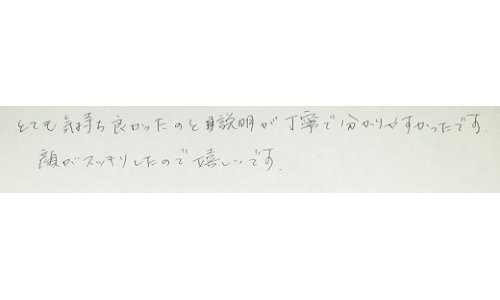 とても気持ち良かったのと説明が丁寧で分かりやすかったです.
顔がスッキリしたので嬉しいです.